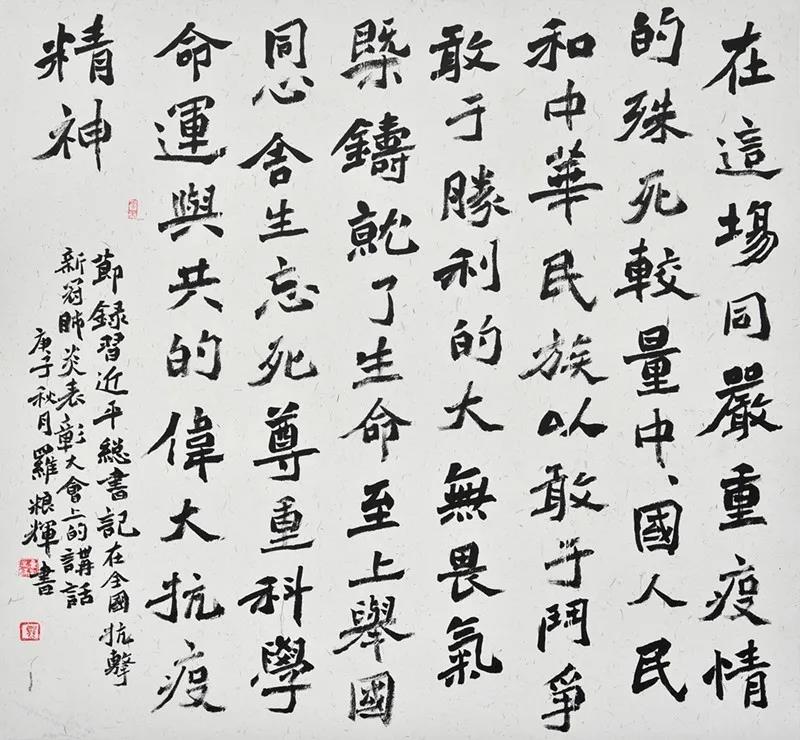 在這場同嚴重疫情
的殊死較量中、國人民
和中華民族以敢于鬥爭
敢于勝利的大無畏氣
槩鑄就了生命至上舉國
同心舍生忘死尊重科學
命運與共的偉大抗疫
精神
節錄習近平総書記在全國抗擊
新冠肺炎表彰大會上的講話
庚子秋月羅輝書